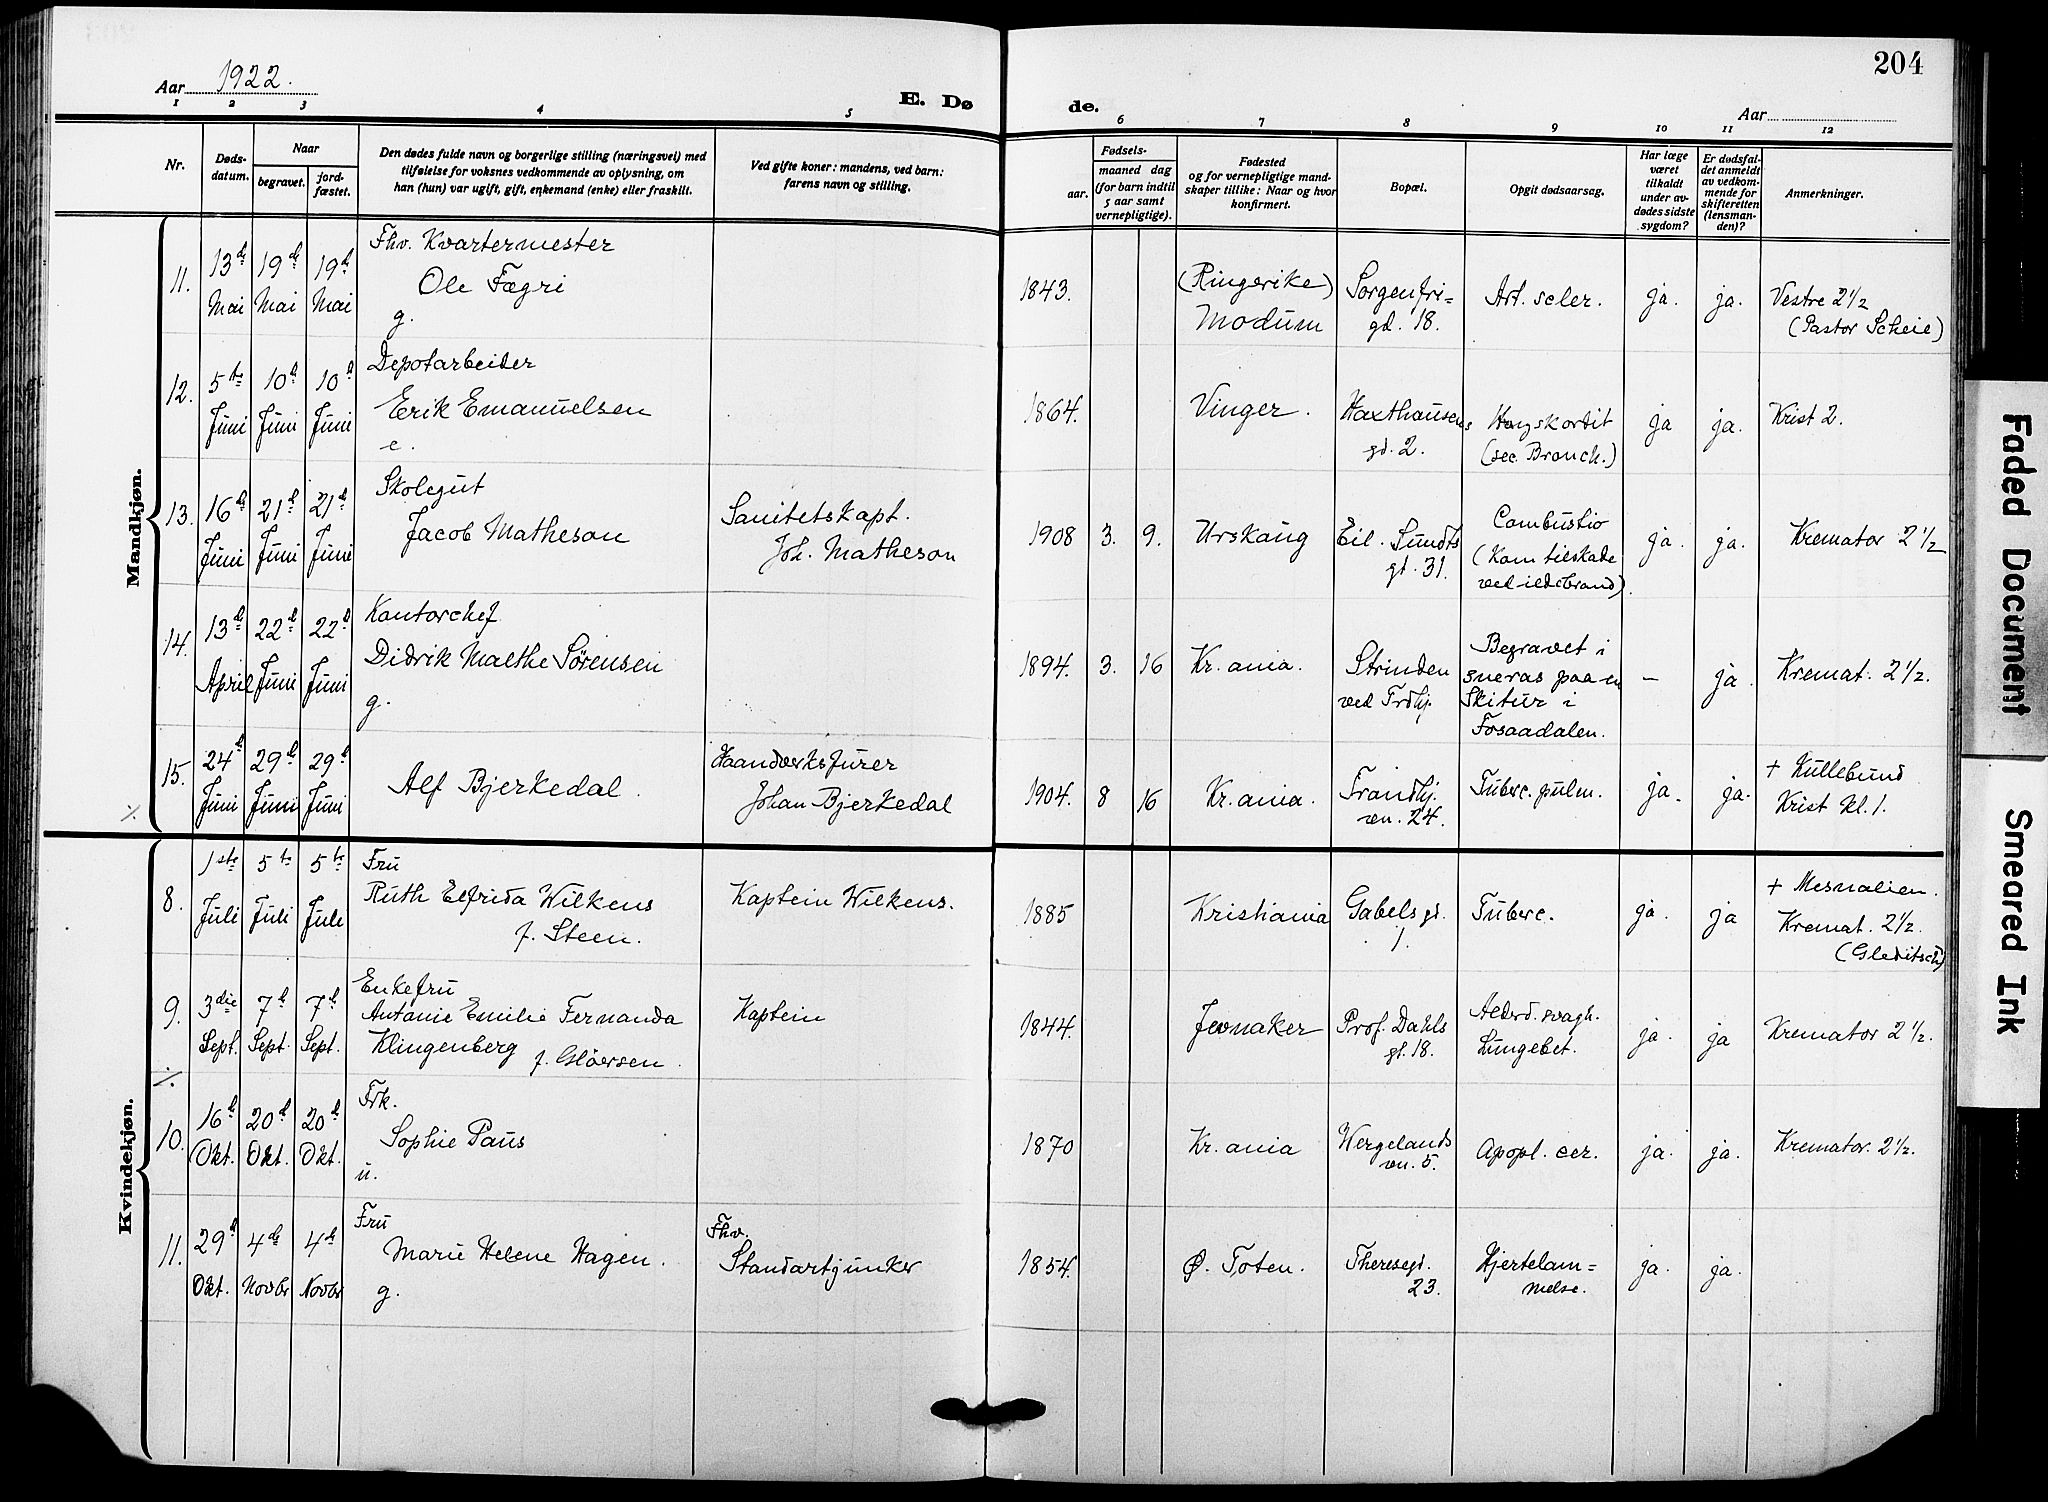 204
Aar 1922.
E. Dø
de.
Aar
1 2 3 4 5 6 7 8 9 10 11 12
Nr.
Døds-
datum.
Naar
begravet.
jord-
fæstet.
Den dødes fulde navn og borgerlige stilling (næringsvei) med
tilføielse for voksnes vedkommende av oplysning, om
han (hun) var ugift, gift, enkemand (enke) eller fraskilt.
Ved gifte koner: mandens, ved barn:
farens navn og stilling.
Fødsels-
aar.
maaned dag
(for barn indtil
5 aar samt
vernepligtige).
Fødested
og for vernepligtige mand-
skaper tillike: Naar og hvor
konfirmert.
Bopæl.
Opgit dødsaarsag.
Har læge
været
tilkaldt
under av-
dødes sidste
sygdom?
Er dødsfal-
det anmeldt
av vedkom-
mende for
skifteretten
(lensman-
den)?
Anmerkninger.
Mandkjøn.
11.
13de
Mai
19de
Mai
19de
Mai
Fhv. Kvartermester
Ole Fægri
g.
1843.
(Ringerike)
Modum
Sorgenfri=
gd. 18.
Art. scler.
ja.
ja.
Vestre 2 1/2
(Pastor Scheie)
12.
5te
Juni
10d
Juni
10d
Juni
Depotarbeider
Erik Emanuelsen
e.
1864.
Vinger.
Haxthausens
gd. 2.
(sec. Bronch.)
ja
ja.
Krist 2.
13.
16de
Juni
21de
Juni
21de
Juni
Skolegut
Jacob Matheson
Sanitetskapt.
Joh. Matheson
1908
3.
9.
Urskaug
Eil. Sundts
gt. 31.
Combustio
(Kom tilskade
ved ildebrand).
ja.
ja.
Kremator 2 1/2
14.
13de
April
22de
Juni
22de
Juni
Kontorchef
Didrik Malthe Sørensen
g.
1894.
3.
16
Kr.ania.
Strinden
ved Trdhj.
Begravet i
sneras paa en
Skitur i
Fosaadalen.
—
ja.
Kremat. 2 1/2.
15.
24de
Juni
29de
Juni
29de
Juni
Alf Bjerkedal.
Haandverksfurer
Johan Bjerkedal
1904.
8
16
Kr.ania.
Trondhj.
vn. 24.
Tuberc. pulm.
ja.
ja.
+ Kullebund
Krist Kl. 1.
Kvindekjøn.
8.
1ste
Juli
5te
Juli
5te
Juli
Fru
Ruth Elfrida Wilkens
f. Steen.
Kaptein Wilkens.
1885
Kristiania
Gabels gt.
1.
Tuberc.
ja.
ja
+ Mesnalien.
Kremat. 2 1/2.
(Gleditsch)
9.
3die
Sept.
7de
Sept.
7de
Sept.
Enkefru
Antonie Emilie Fernanda
Klingenberg f. Gløersen.
Kaptein
1844.
Jevnaker
Prof. Dahls
gt. 18.
Alderd. svagh.
Lungebet.
ja.
ja
Kremator 2 1/2.
10.
16de
Okt.
20de
Okt.
20de
Okt.
Frk.
Sophie Paus
u.
1870
Kr.ania
Wergelands
vn. 5.
Apopl. cer.
ja.
ja.
Kremator. 2 1/2.
11.
29de
Okt.
4de
Novbr
4de
Novbr
Fru
Marie Helene Hagen.
g.
Fhv.
Standartjunker
1854.
Ø. Toten.
Theresegd.
23.
Hjertelam=
melse.
ja.
ja.
Faded Document
Smeared Ink